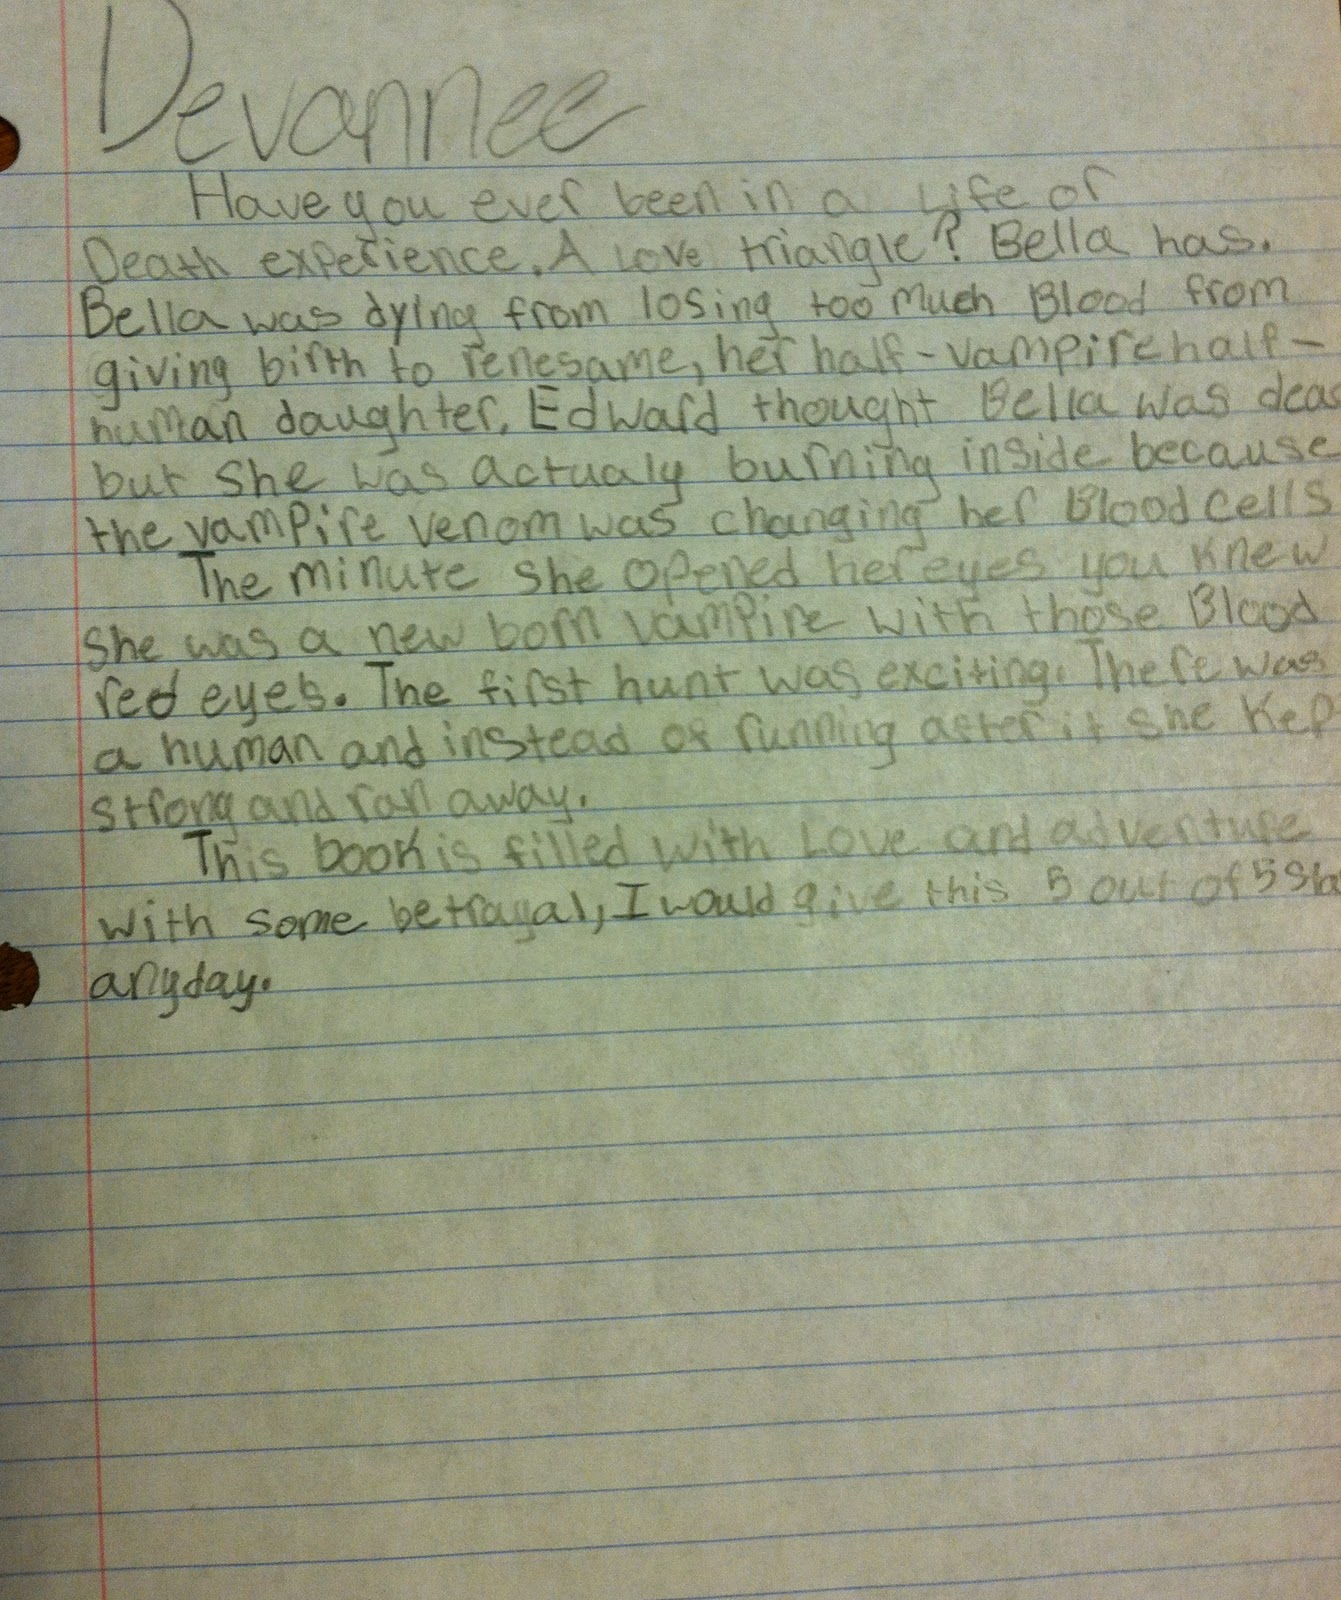 Devannee
Have you ever been in a Life or
Death experience. A Love triangle? Bella has.
Bella was dying from losing too much Blood from
giving birth to renesame, her half-vampire half-
human daughter. Edward thought Bella was dea
but she was actualy burning inside because
the vampire venom was changing her Blood cells
The minute she opened her eyes you knew
she was a new born vampire with those Blood
red eyes. The first hunt was exciting. There was
a human and instead of running after it she Kep
strong and ran away.
This book is filled with Love and adventure
with some betrayal, I would give this 5 out of 5 Sta
anyday.